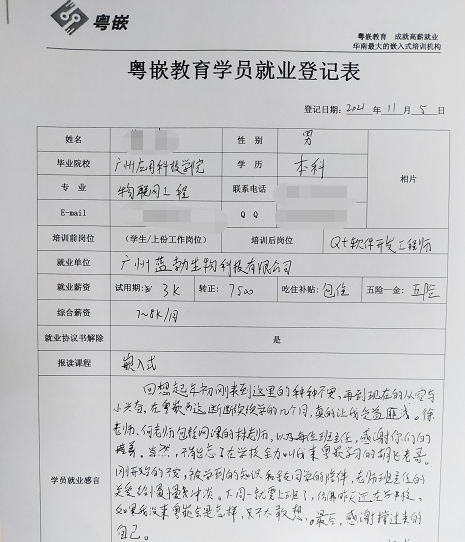 粤嵌
粤嵌教育 成就高薪就业
华南最大的嵌入式培训机构
粤嵌教育学员就业登记表
登记日期：2021 年 11 月 5 日
姓名 性 别 男
毕业院校 广州应用科技学院 学 历 本科
相片
专 业 物联网工程 联系电话
E-mail Q Q
培训前岗位 （学生/上份工作岗位） 培训后岗位 Qt软件开发工程师
就业单位 广州蓝勃生物科技有限公司
就业薪资 试用期: 3K 转正: 7500 吃住补贴: 包住 五险一金: 五险
综合薪资 7~8K/月
就业协议书解除 是
报读课程 嵌入式
学员就业感言
回想起年初刚来到这里的种种不安，再到现在的从容与
小兴奋，在粤嵌这断断续续学的几个月，真的让我受益匪浅。徐
老师、何老师包括网课的林老师，以及每位班主任，感谢你们的
培养。当然，不能忘了在学校全力叫我来粤嵌学习的胡飞老哥。
刚开始的不安，被学到的知识和同学的陪伴，老师班主任的
关爱给慢慢冲淡。下周一就要上班了，仿佛昨天还在
如果我没来粤嵌会是怎样，只不太敢想。最后，感谢撑过来的
自己。